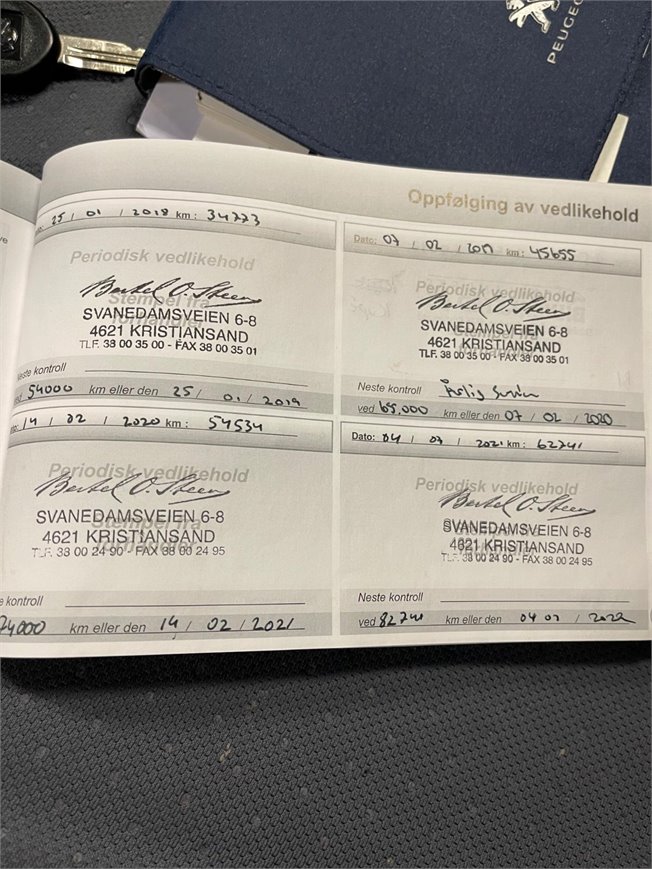 PEUGEO
Oppfølging av vedlikehold
25 / 01 / 2018 km : 34773
Periodisk vedlikehold
Stempel fra
Bertel O. Steen
SVANEDAMSVEIEN 6-8
4621 KRISTIANSAND
TLF. 38 00 35 00 - FAX 38 00 35 01
Neste kontroll
ved 54000 km eller den 25 / 01 / 2019
Dato: 07 / 02 / 2019 km : 45655
Periodisk vedlikehold
Bertel O. Steen
SVANEDAMSVEIEN 6-8
4621 KRISTIANSAND
TLF. 38 00 35 00 - FAX 38 00 35 01
Neste kontroll Årlig Service
ved 65.000 km eller den 07 / 02 / 2020
14 / 02 / 2020 km : 54534
Periodisk vedlikehold
Bertel O. Steen
Stempel fra
SVANEDAMSVEIEN 6-8
4621 KRISTIANSAND
forhandler
TLF. 38 00 24 90 - FAX 38 00 24 95
e kontroll
74000 km eller den 14 / 02 / 2021
Dato: 04 / 07 / 2021 km : 62741
Periodisk vedlikehold
Bertel O. Steen
SVANEDAMSVEIEN 6-8
4621 KRISTIANSAND
TLF. 38 00 24 90 - FAX 38 00 24 95
Neste kontroll
ved 82741 km eller den 04 07 / 2022